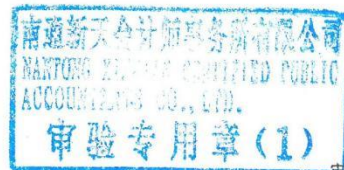 南通新天会计师事务所有限公司
NANTONG CERTIFIED PUBLIC
ACCOUNTANTS CO., LTD.
审验专用章(1)